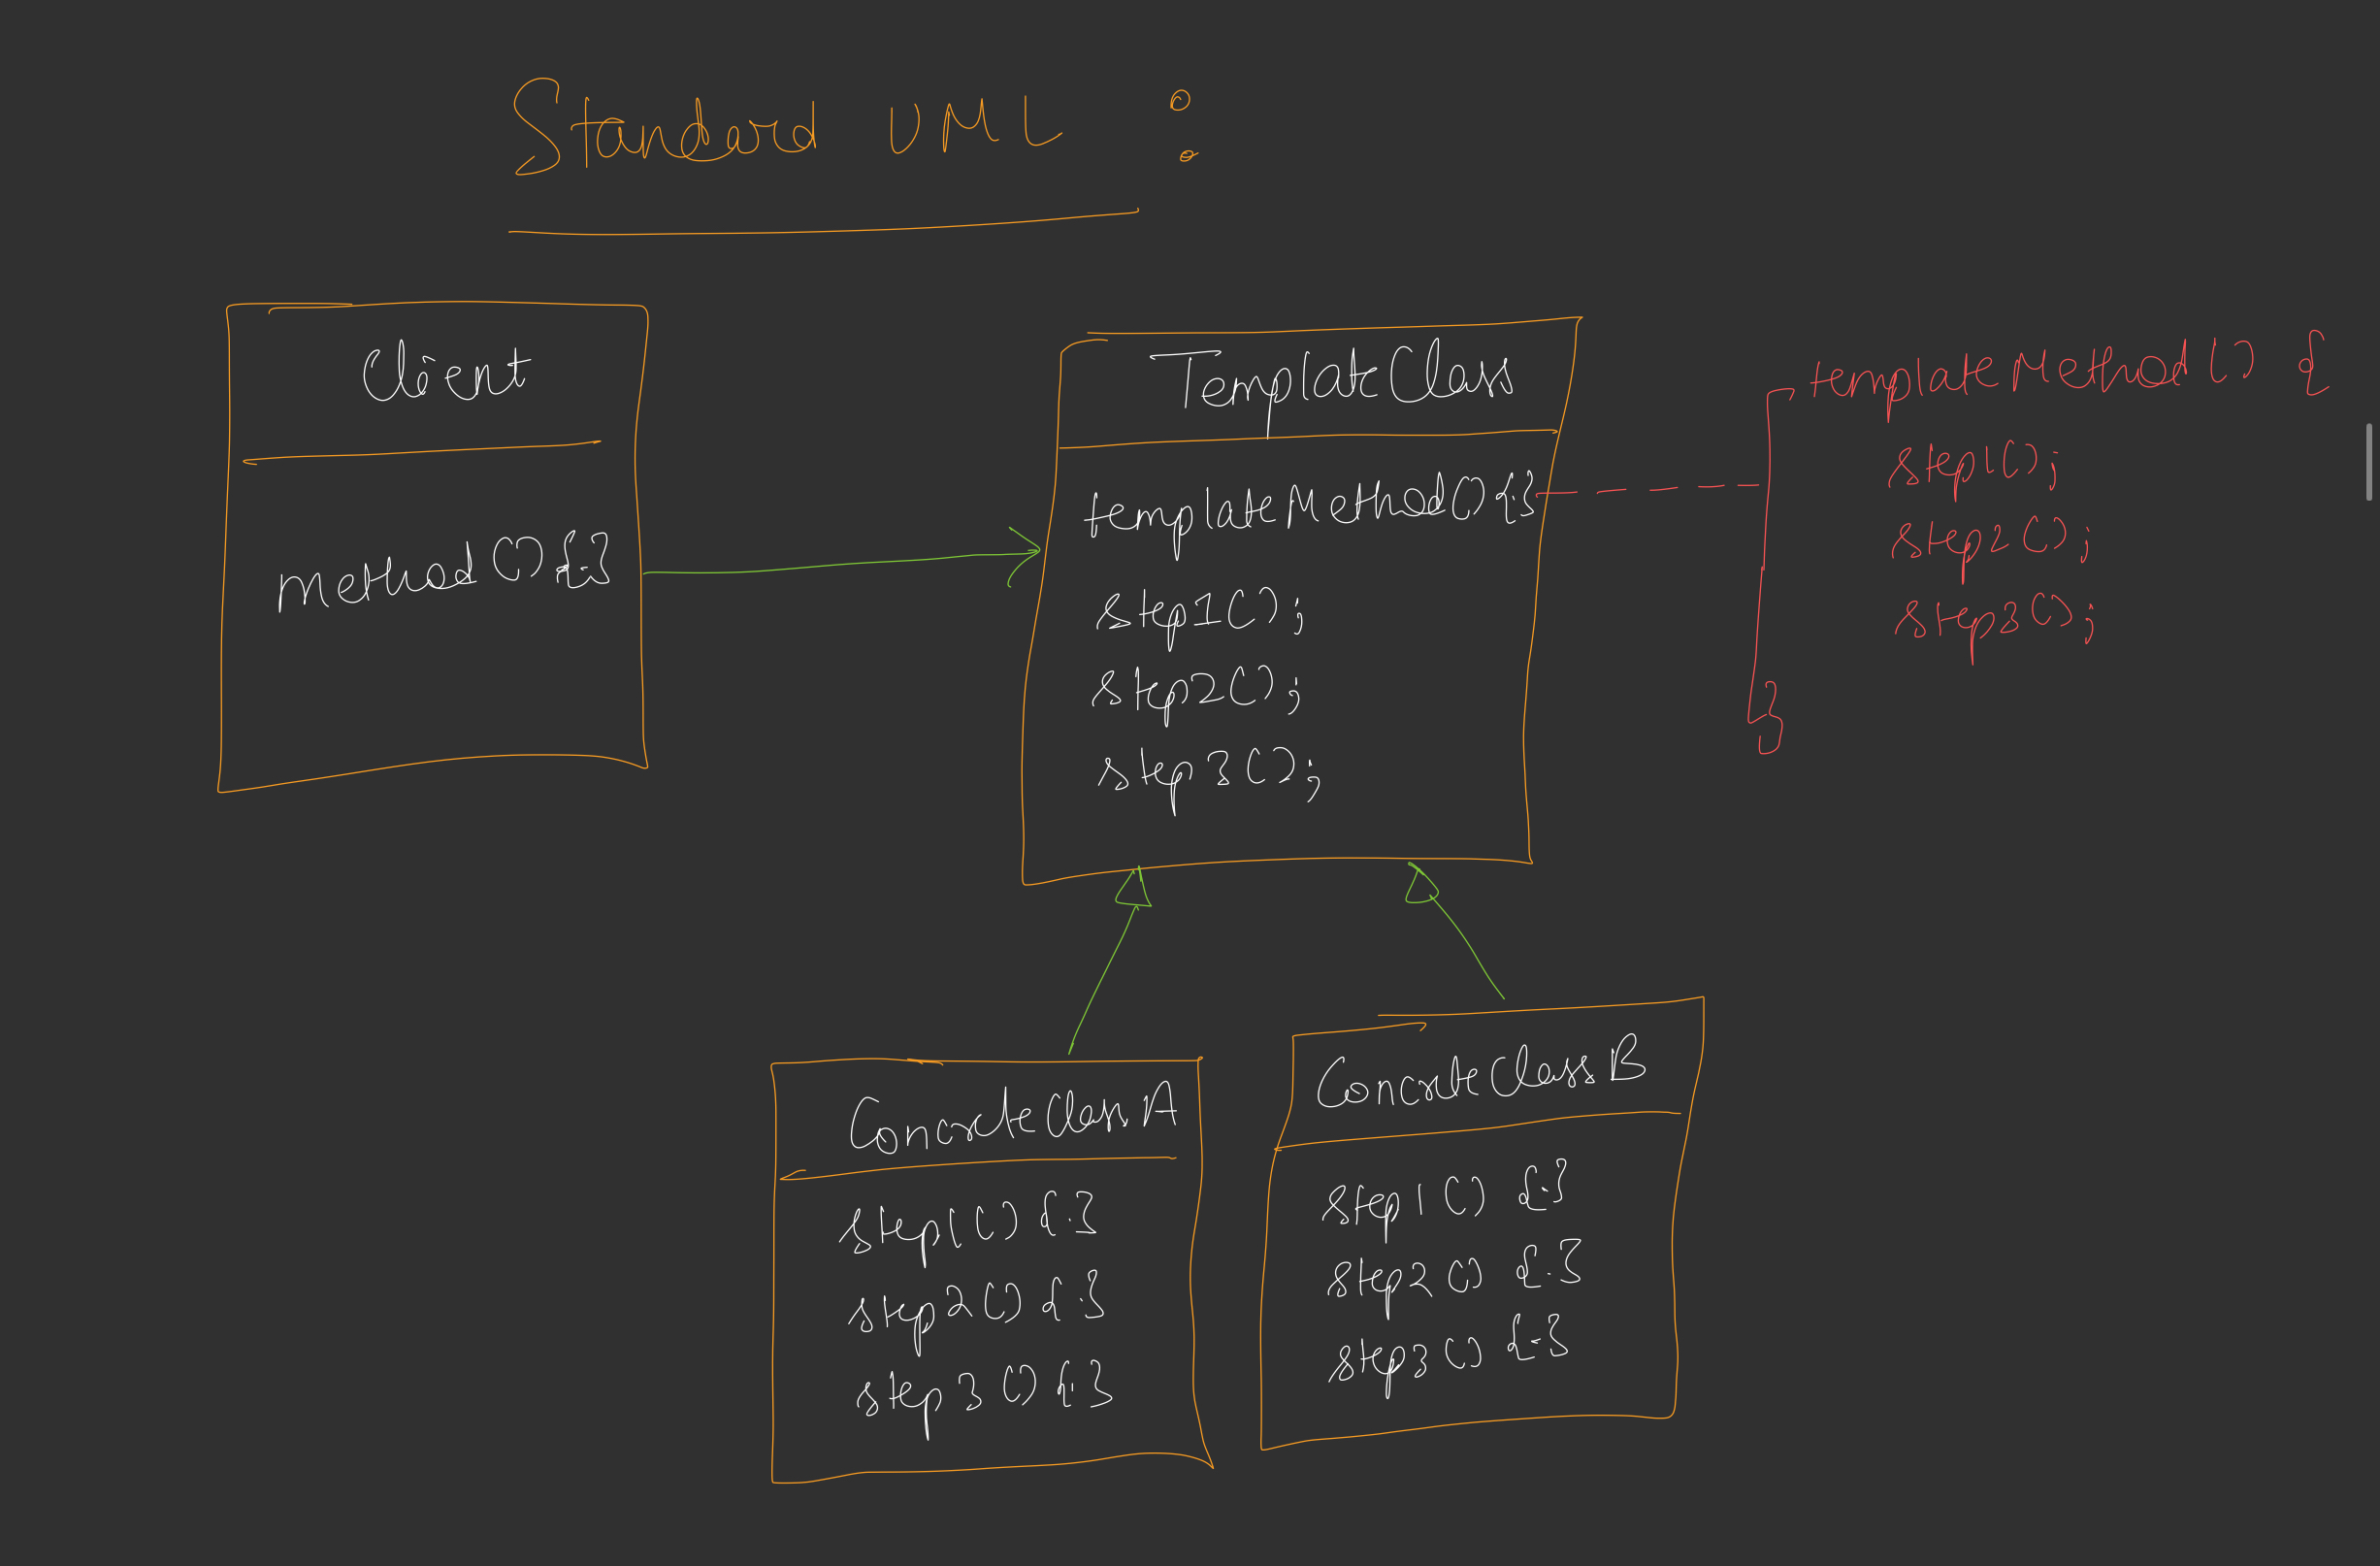 Standard UML :
Client
method () { : }
TemplateClass
templateMethod();
step1();
step2();
step3();
templateMethod() {
step1();
step2();
step3();
}
ConcreteClassA
step1() { . }
step2() { . }
step3() { : }
ConcreteClassB
step1() { . }
step2() { . }
step3() { - }